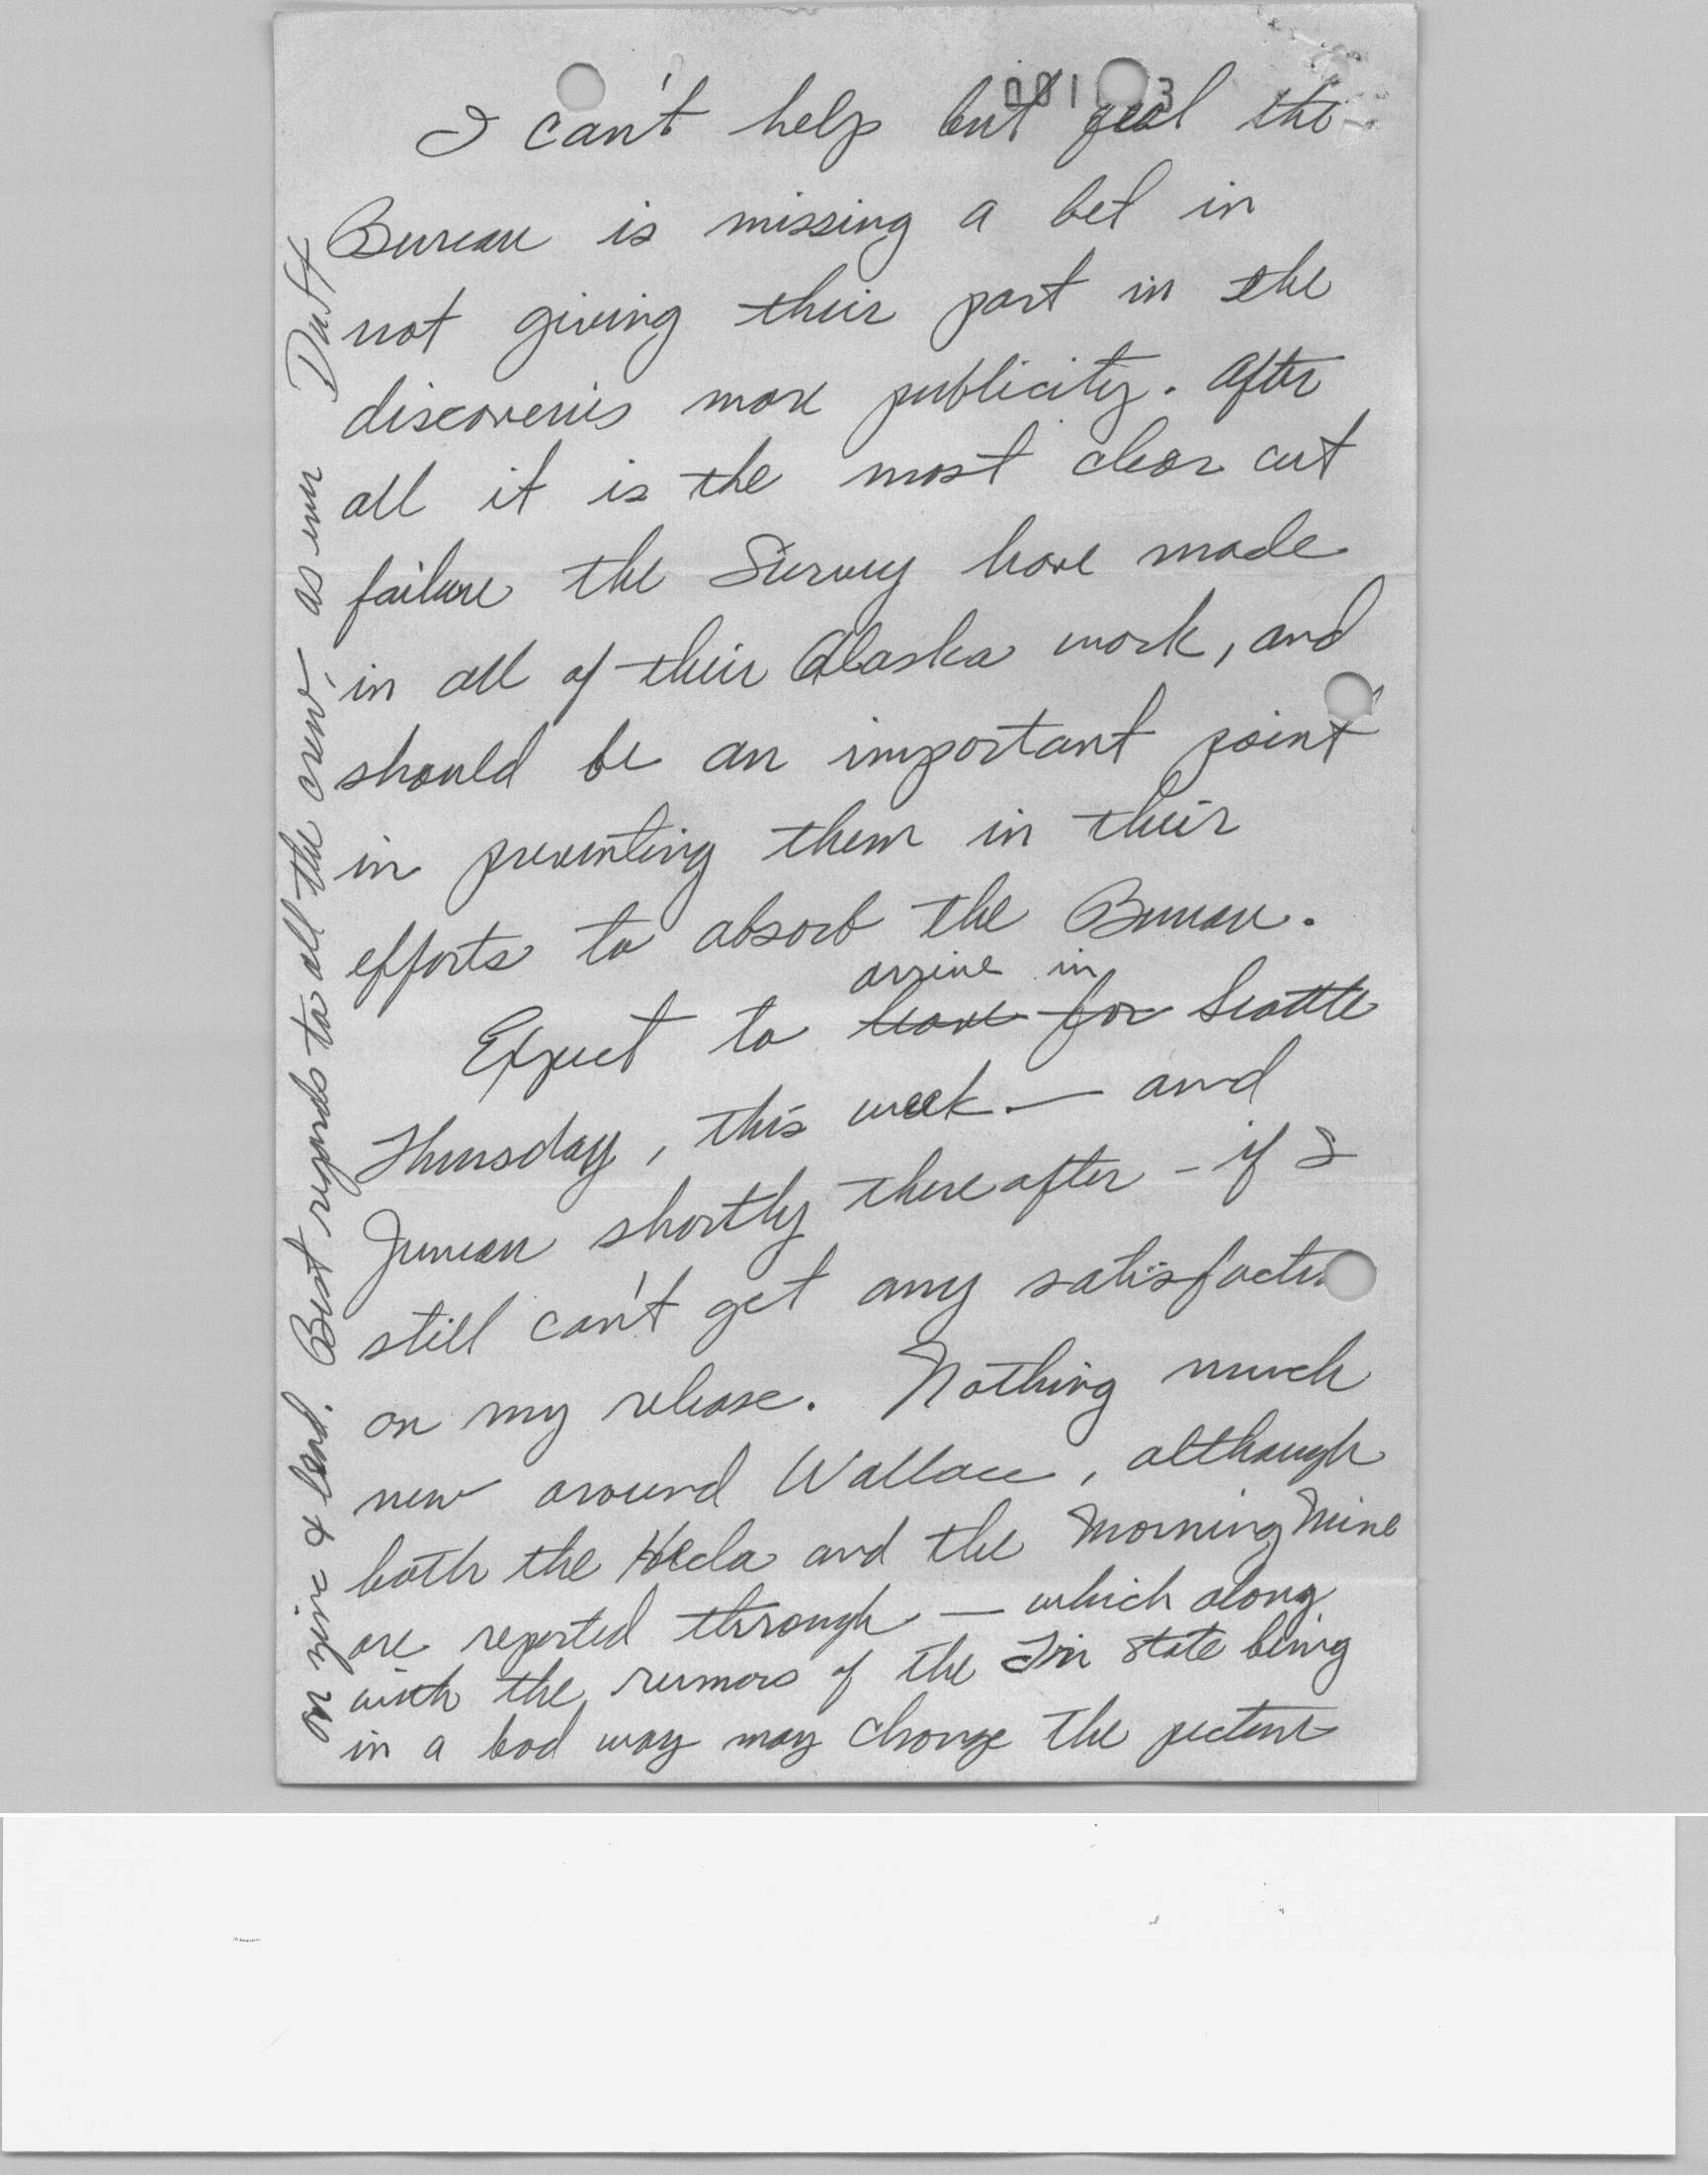 I can't help but feel the
Bureau is missing a bet in
not giving their part in the
discoveries more publicity. After
all it is the most clear cut
failure the Survey have made
in all of their Alaska work, and
should be an important point
in preventing them in their
efforts to absorb the Bureau.
arrive in
Expect to leave for Seattle
Thursday, this week — and
Juneau shortly thereafter - if I
still can't get any
on my release. Nothing much
new around Wallace, although
both the Hecla and the Morning Mine
are reported through — which along
with the rumors of the Tri State being
in a bad way may change the picture
on zinc & lead. Best regards to all the crew, as ever